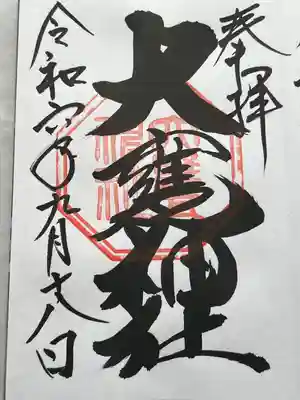 奉拝
大甕神社
令和六年九月十八日